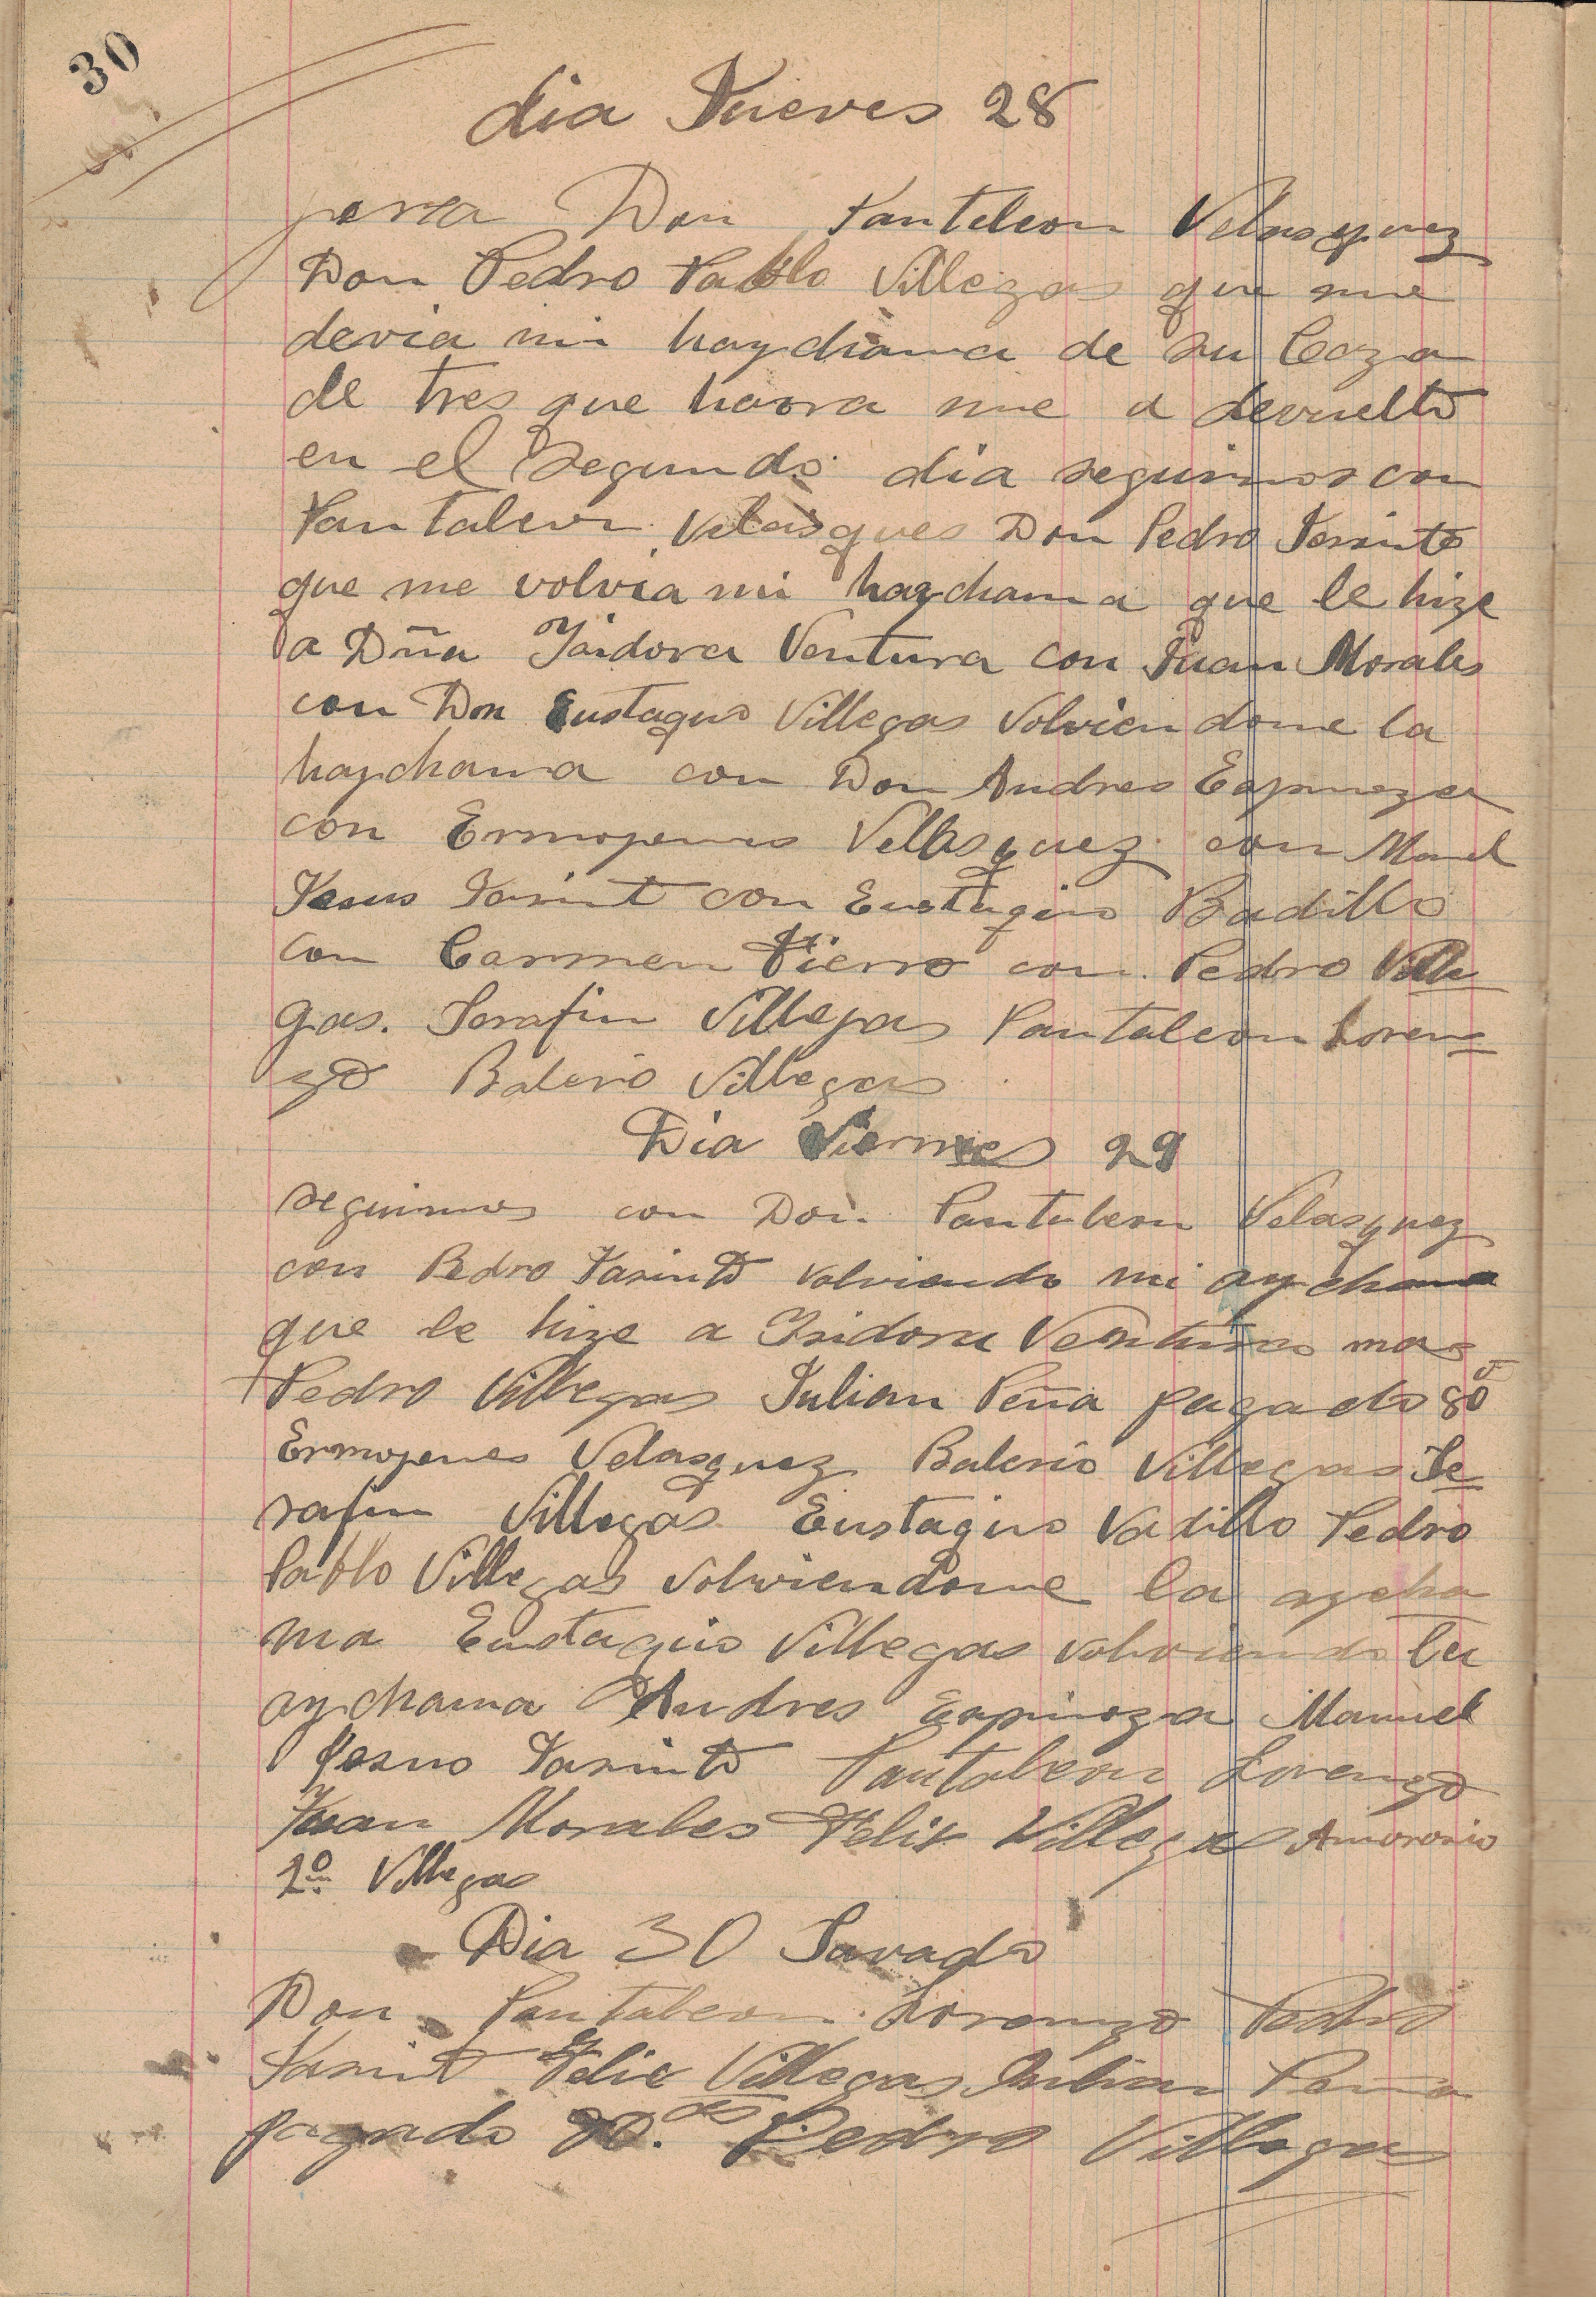 30
dia Jueves 28
Don Panteleon Velasquez
Don Pedro Pablo Villegas que me
devia mi haychama de su Caza
de tres que haora me a devuelto
en el Segundo dia seguimos con
Pantaleon Velasques Don Pedro Jasinto
que me volvia mi haychama que le hize
a Dña Ysidora Ventura con Juan Morales
con Don Eustaquio Villegas Volviendome la
haychama con Don Andres Espinoza
con Ermojenes Vellasquez con Manel
Jesus Jasint con Eustaquio Badillo
con Carmen Fierro con Pedro Ville
gas. Serafin Villegas Pantaleon Loren
zo Balerio Villegas
Dia Viernes 29
seguimos con Don Pantaleon Velasquez
con Pedro Jasinto volviendo mi aychama
que le hize a Isidora Ventura mas
Pedro Villegas Julian Peña pagado 80
Ermojenes Velasquez Balerio Villegas Se
rafin Villegas Eustaquio Vadillo Pedro
Pablo Villegas volviendome la aycha
ma Eustaquio Villegas volviendo la
aychama Andres Espinoza Manuel
Jesus Jasinto Pantaleon Lorenzo
Juan Morales Felix Villegas
2º Villegas
Dia 30 Savado
Don Pantaleon Lorenzo Pedro
Jasint Felix Villegas Julian Peña
pagado Pedro Villegas